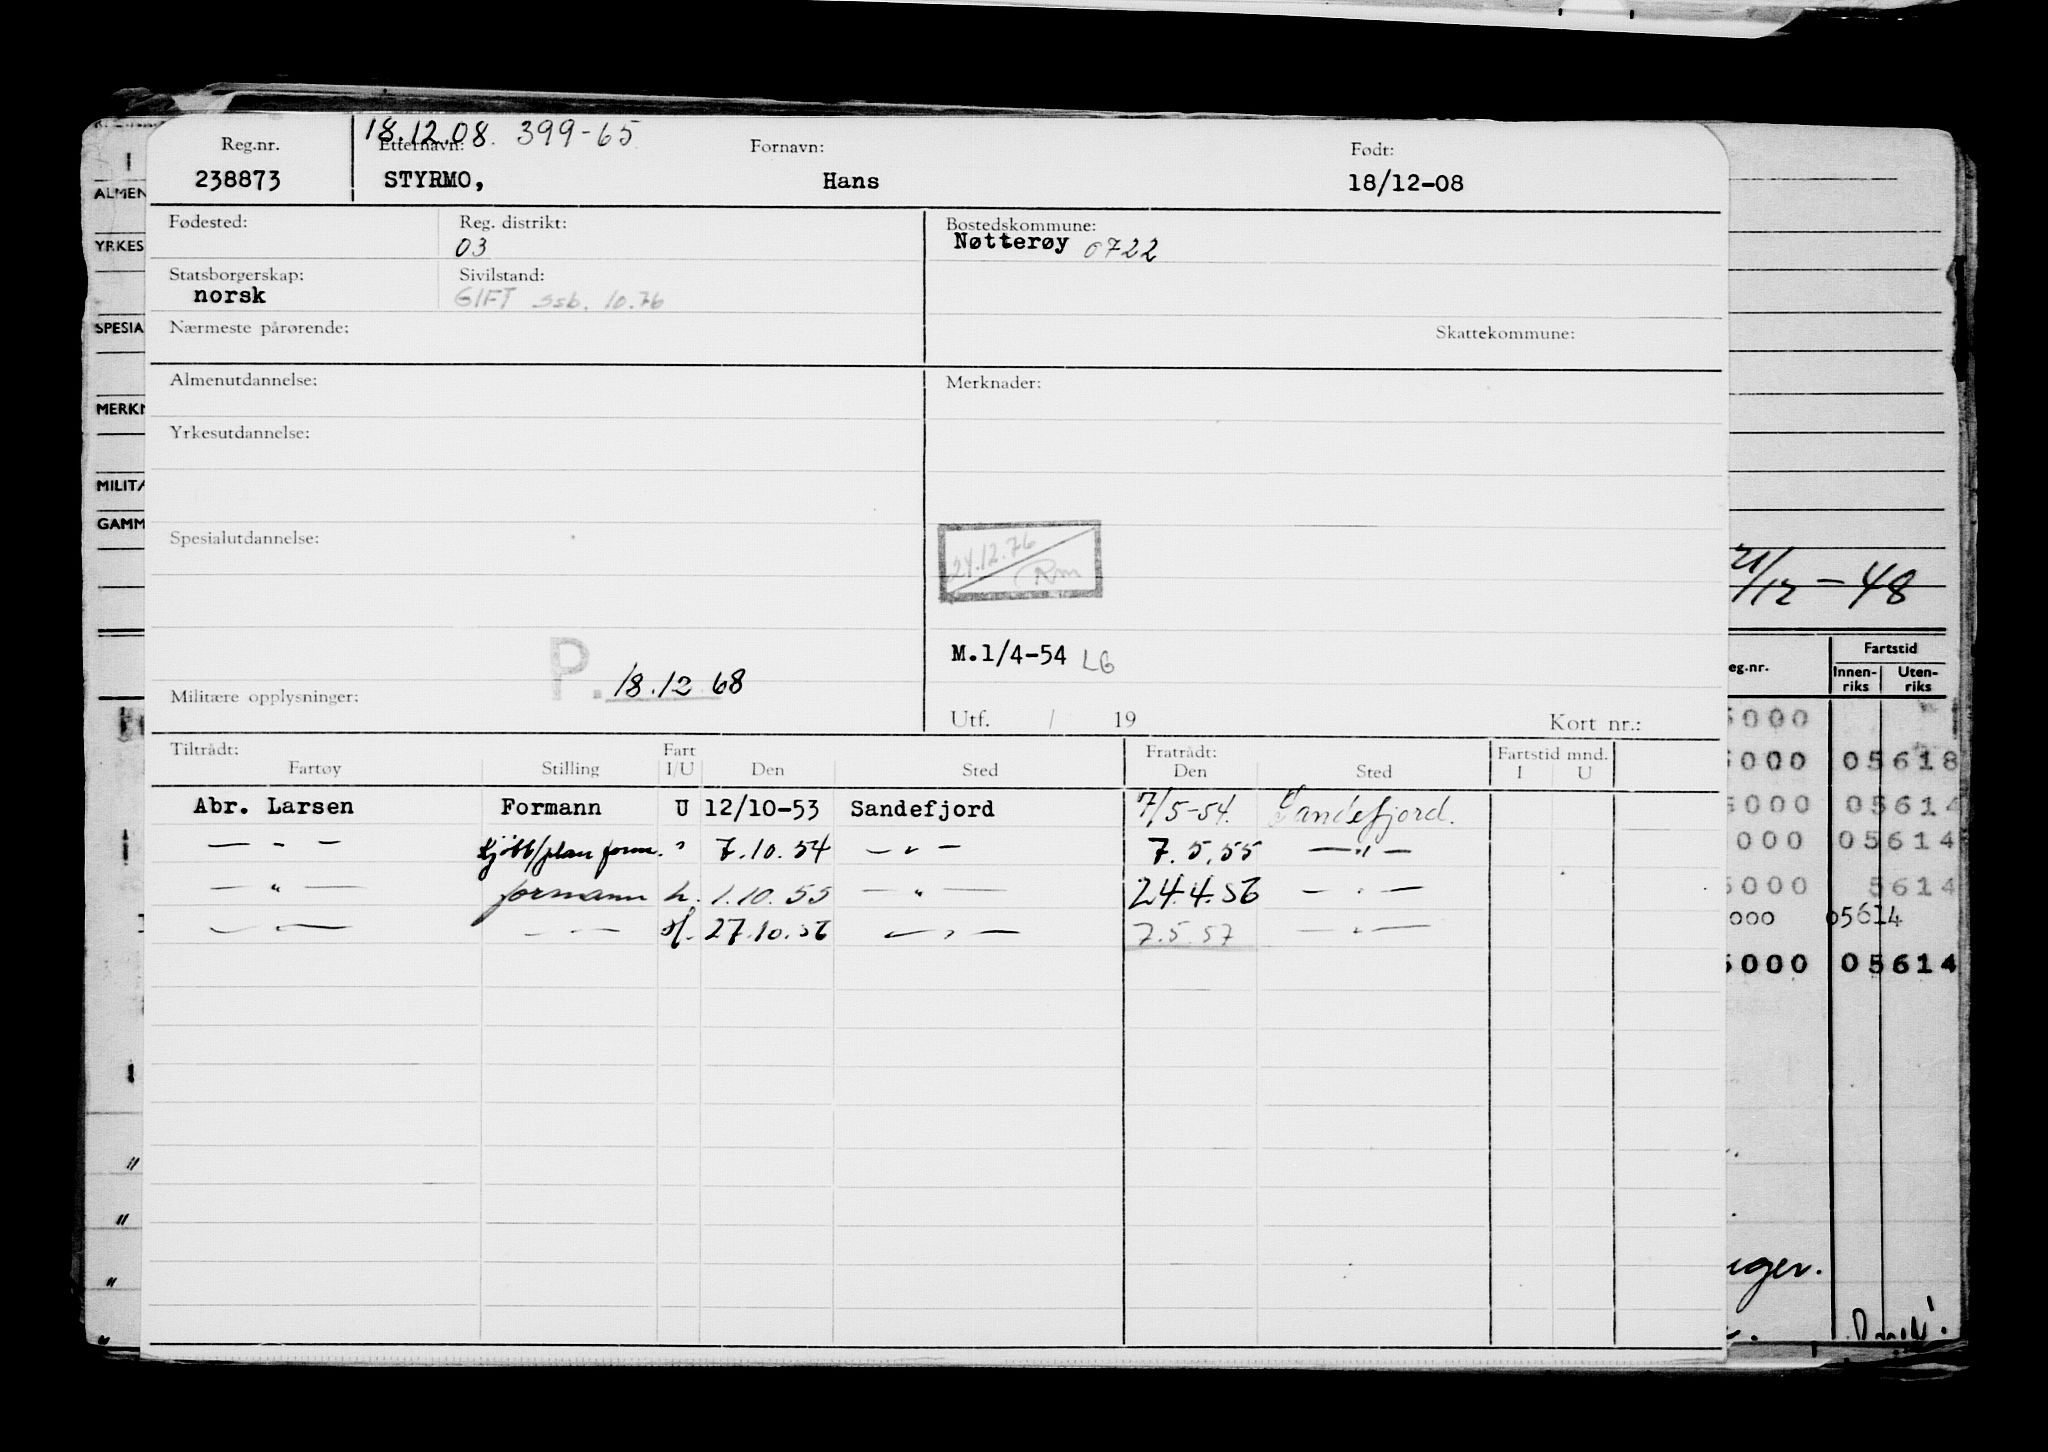 18.12.08. 399-65
Reg.nr. Etternavn: Fornavn: Født:
238873 STYRMO, Hans 18/12-08
Fødested: Reg. distrikt: Bostedskommune:
03 Nøtterøy 0722
Statsborgerskap: Sivilstand:
norsk GIFT ssb. 10.76
Nærmeste pårørende: Skattekommune:
Almenutdannelse: Merknader:
Yrkesutdannelse:
Spesialutdannelse:
24.12.76
Rm
M.1/4-54 LG
P. 18.12 68
Militære opplysninger:
Utf. / 19 Kort nr.:
Tiltrådt: Fart Fratrådt: Fartstid mnd.
Fartøy Stilling I/U Den Sted Den Sted I U
Abr. Larsen Formann U 12/10-53 Sandefjord 7/5-54. Sandefjord.
— " — kjøtt/plan form. " 7.10.54 — " — 7.5.55 — " —
— " — formann h. 1.10.55 — " — 24.4.56 — " —
— " — — " — 27.10.56 — " — 7.5.57 — " —
ALMEN
YRKES
SPESIA
MERKN
MILITÆ
GAMM
21/12-48
eg.nr. Fartstid
Innen-riks Uten-riks
5000
5000 05618
5000 05614
000 05614
5000 5614
000 05614
5000 05614